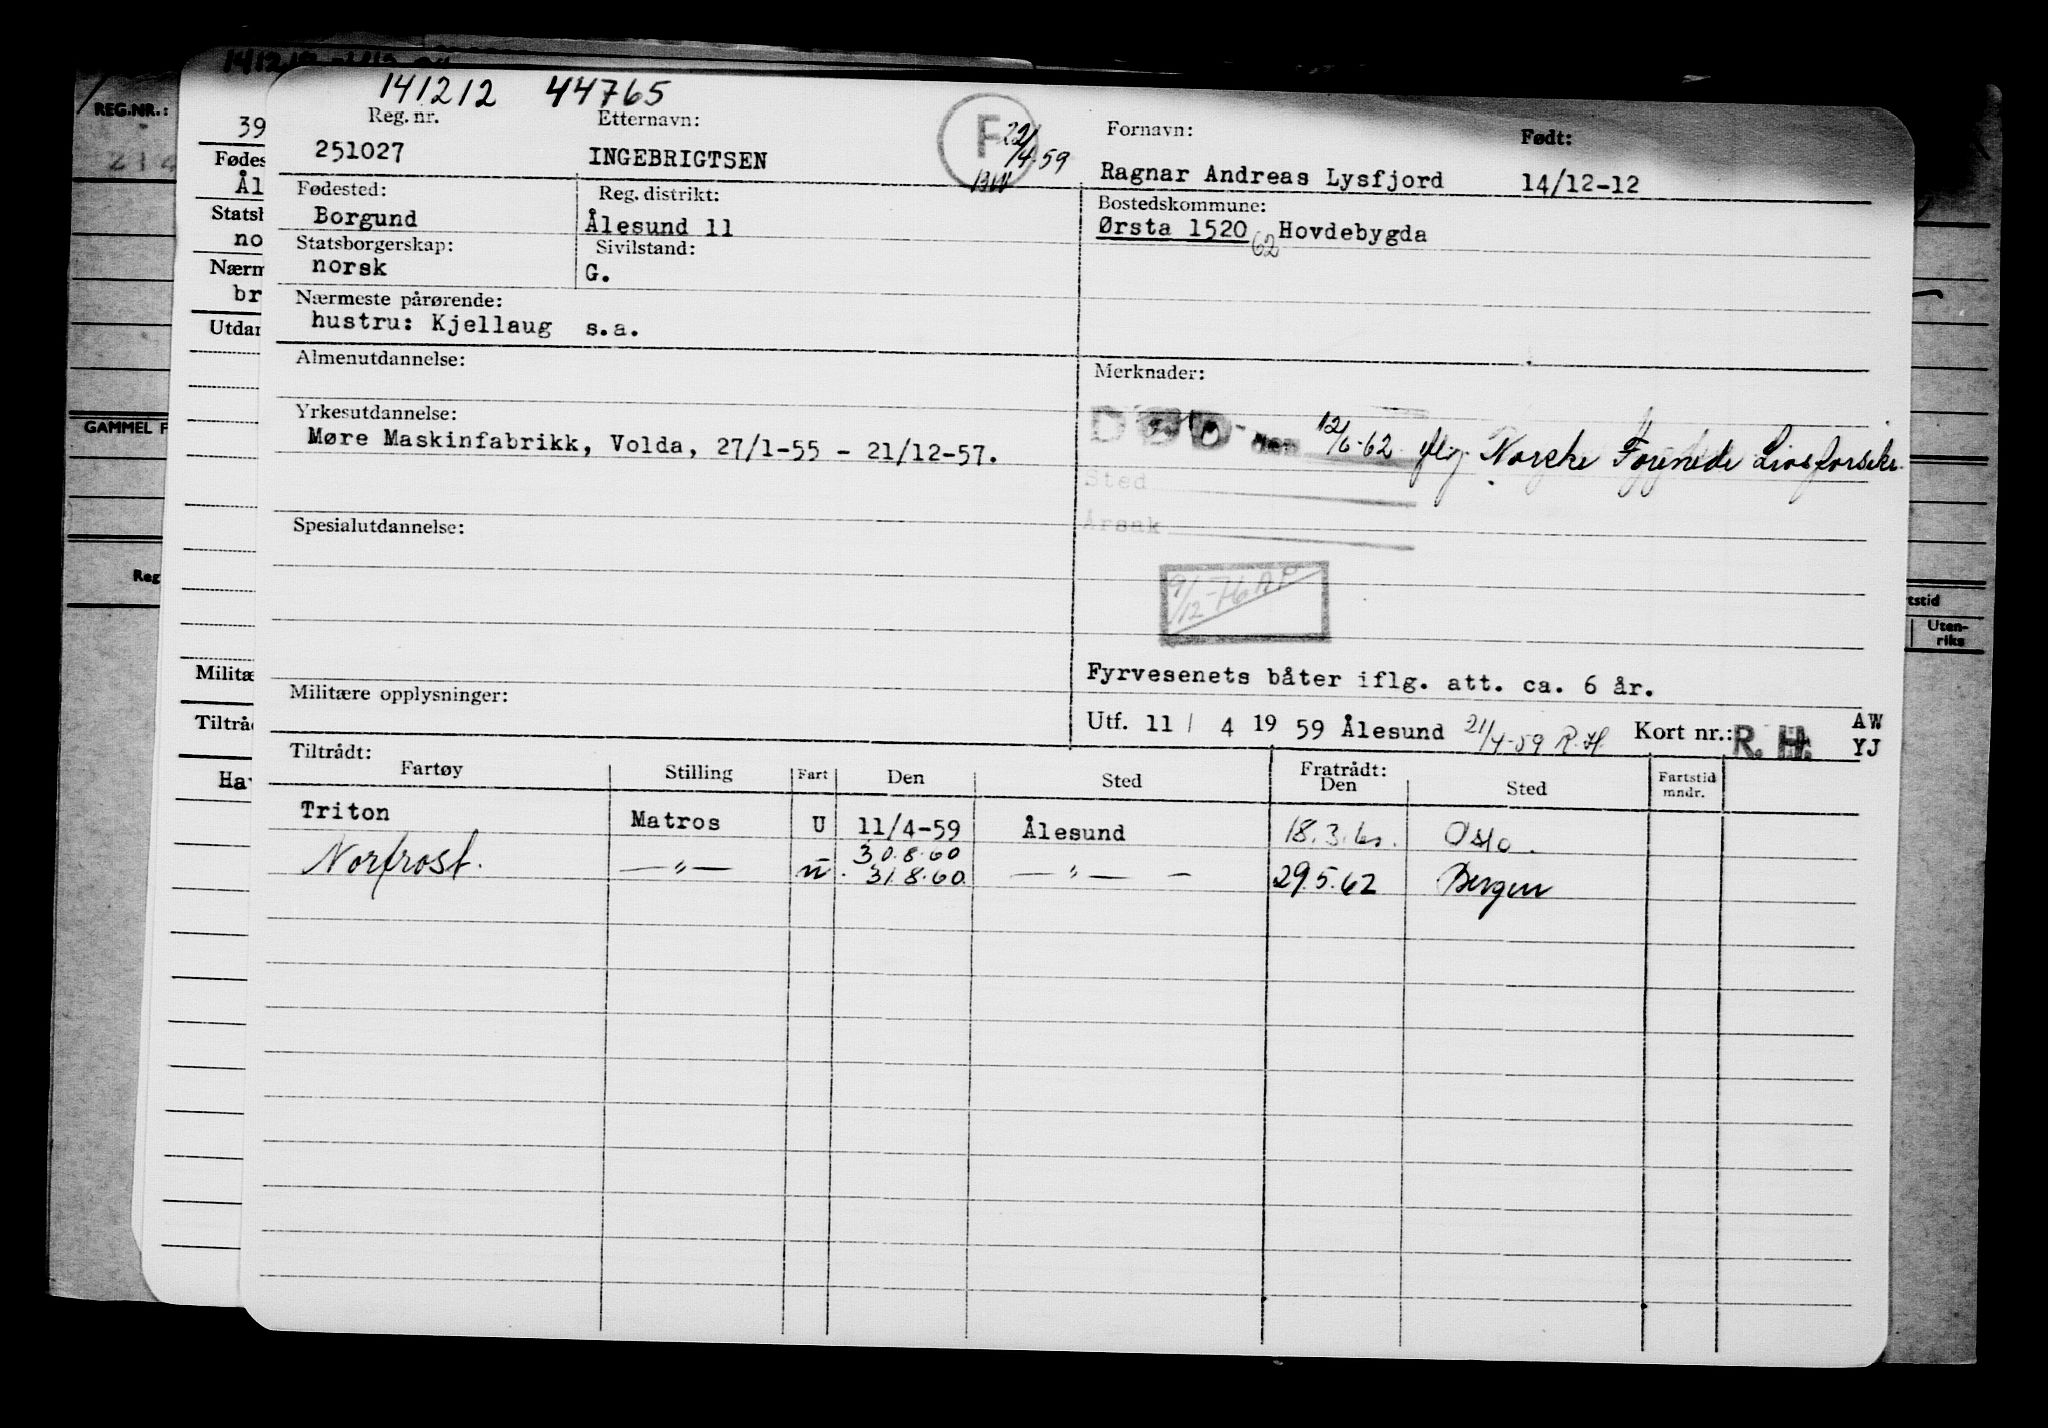 141212 44765
REG.NR.:
39
Reg. nr. Etternavn: Fornavn: Født:
F 22/4-59
251027 INGEBRIGTSEN Ragnar Andreas Lysfjord 14/12-12
Fødes
Ål
Fødested: Reg. distrikt: Bostedskommune:
Borgund Ålesund 11 Ørsta 1520 62 Hovdebygda
Statsb
no
Statsborgerskap: Sivilstand:
norsk G.
Nærm
br
Nærmeste pårørende:
hustru: Kjellaug s.a.
Utdan
Almenutdannelse: Merknader:
GAMMEL F
Yrkesutdannelse:
Møre Maskinfabrikk, Volda, 27/1-55 - 21/12-57.
DØD den 12/6-62 iflg. Norske Forenede Livsforsikr.
Sted
Årsak
Spesialutdannelse:
Reg
9/12-76 AP
rtstid
Uten-
riks
Militæ
Fyrvesenets båter iflg. att. ca. 6 år.
Militære opplysninger:
Utf. 11 / 4 19 59 Ålesund 21/4-59 R.H. Kort nr.: R. H. AW
YJ
Tiltråd
Tiltrådt: Fratrådt:
Hav
Fartøy Stilling Fart Den Sted Den Sted Fartstid
mndr.
Triton Matros U 11/4-59 Ålesund 18.3.60. Oslo.
30.8.60
Norfrost. —"— u. 31.8.60. —"— — 29.5.62 Bergen